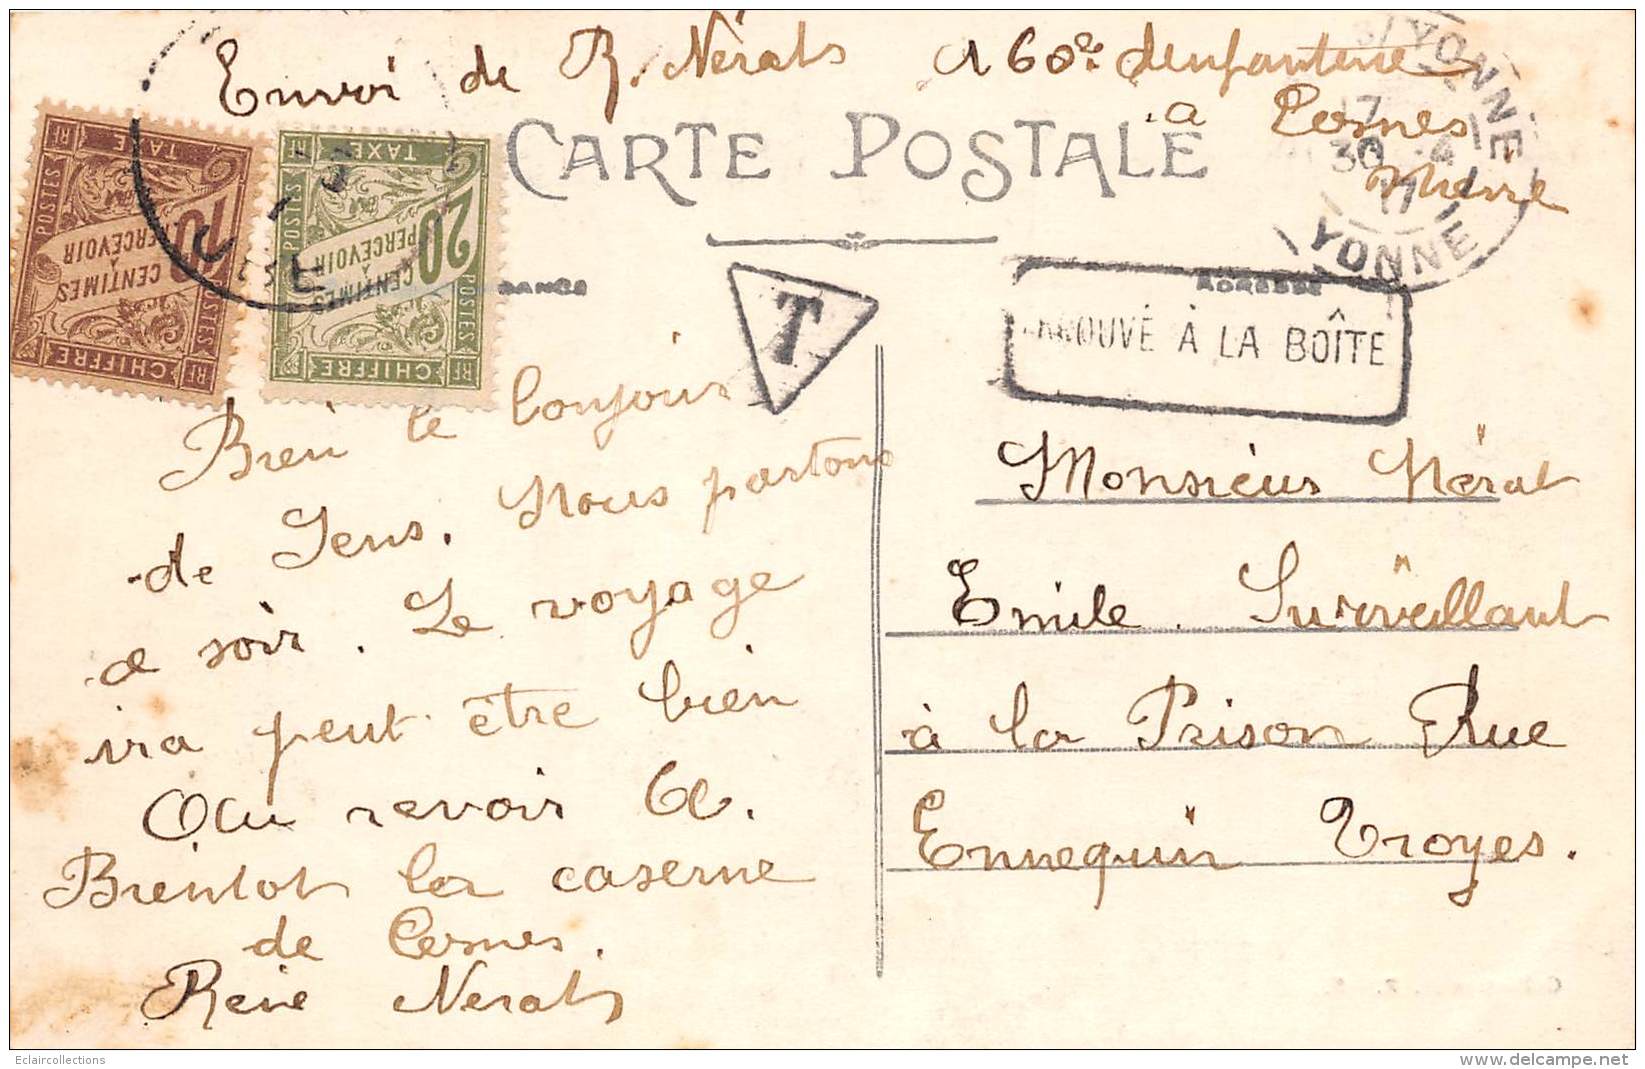 Envoi de R. Nérats 160e d'enfanterie
a Cosnes
Nièvre
CARTE POSTALE
S/YONNE
17
30 4
17
YONNE
RF TAXE
POSTES
10
CENTIMES
À
PERCEVOIR
POSTES
CHIFFRE RF
RF TAXE
POSTES
20
CENTIMES
À
PERCEVOIR
POSTES
CHIFFRE RF
T
ADRESSE
TROUVÉ À LA BOÎTE
Bien le bonjour
de Sens. Nous partons
ce soir. Le voyage
ira peut être bien
Au revoir
Bientot la caserne
de Cosnes.
René Nerats
Monsieur Nérat
Emile. Surveillant
à la Prison Rue
Ennequin Troyes.
Eclaircollections
www.delcampe.net